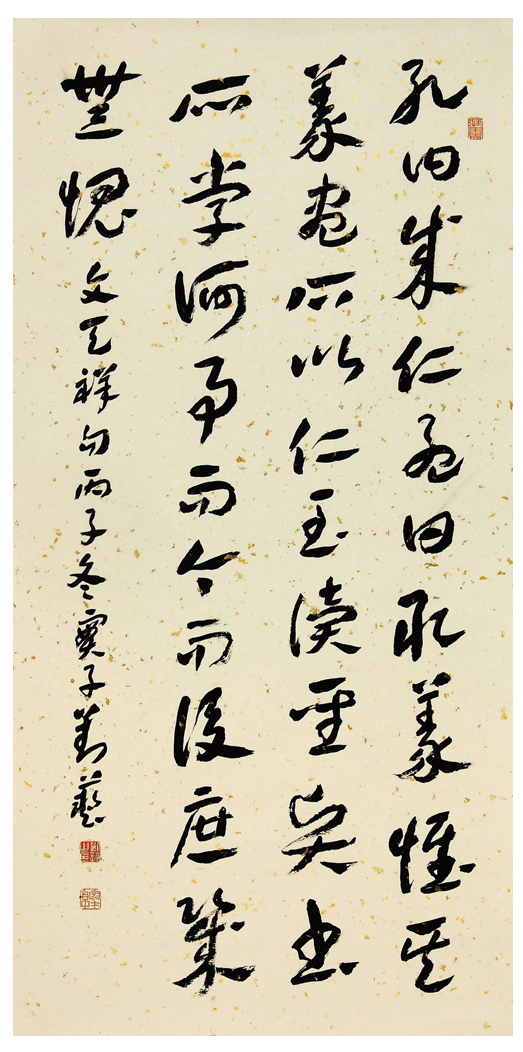 孔曰成仁孟曰取義惟其
義盡所以仁至讀聖賢書
所學何事而今而後庶幾
無愧 文天祥句丙子冬實子劉藝